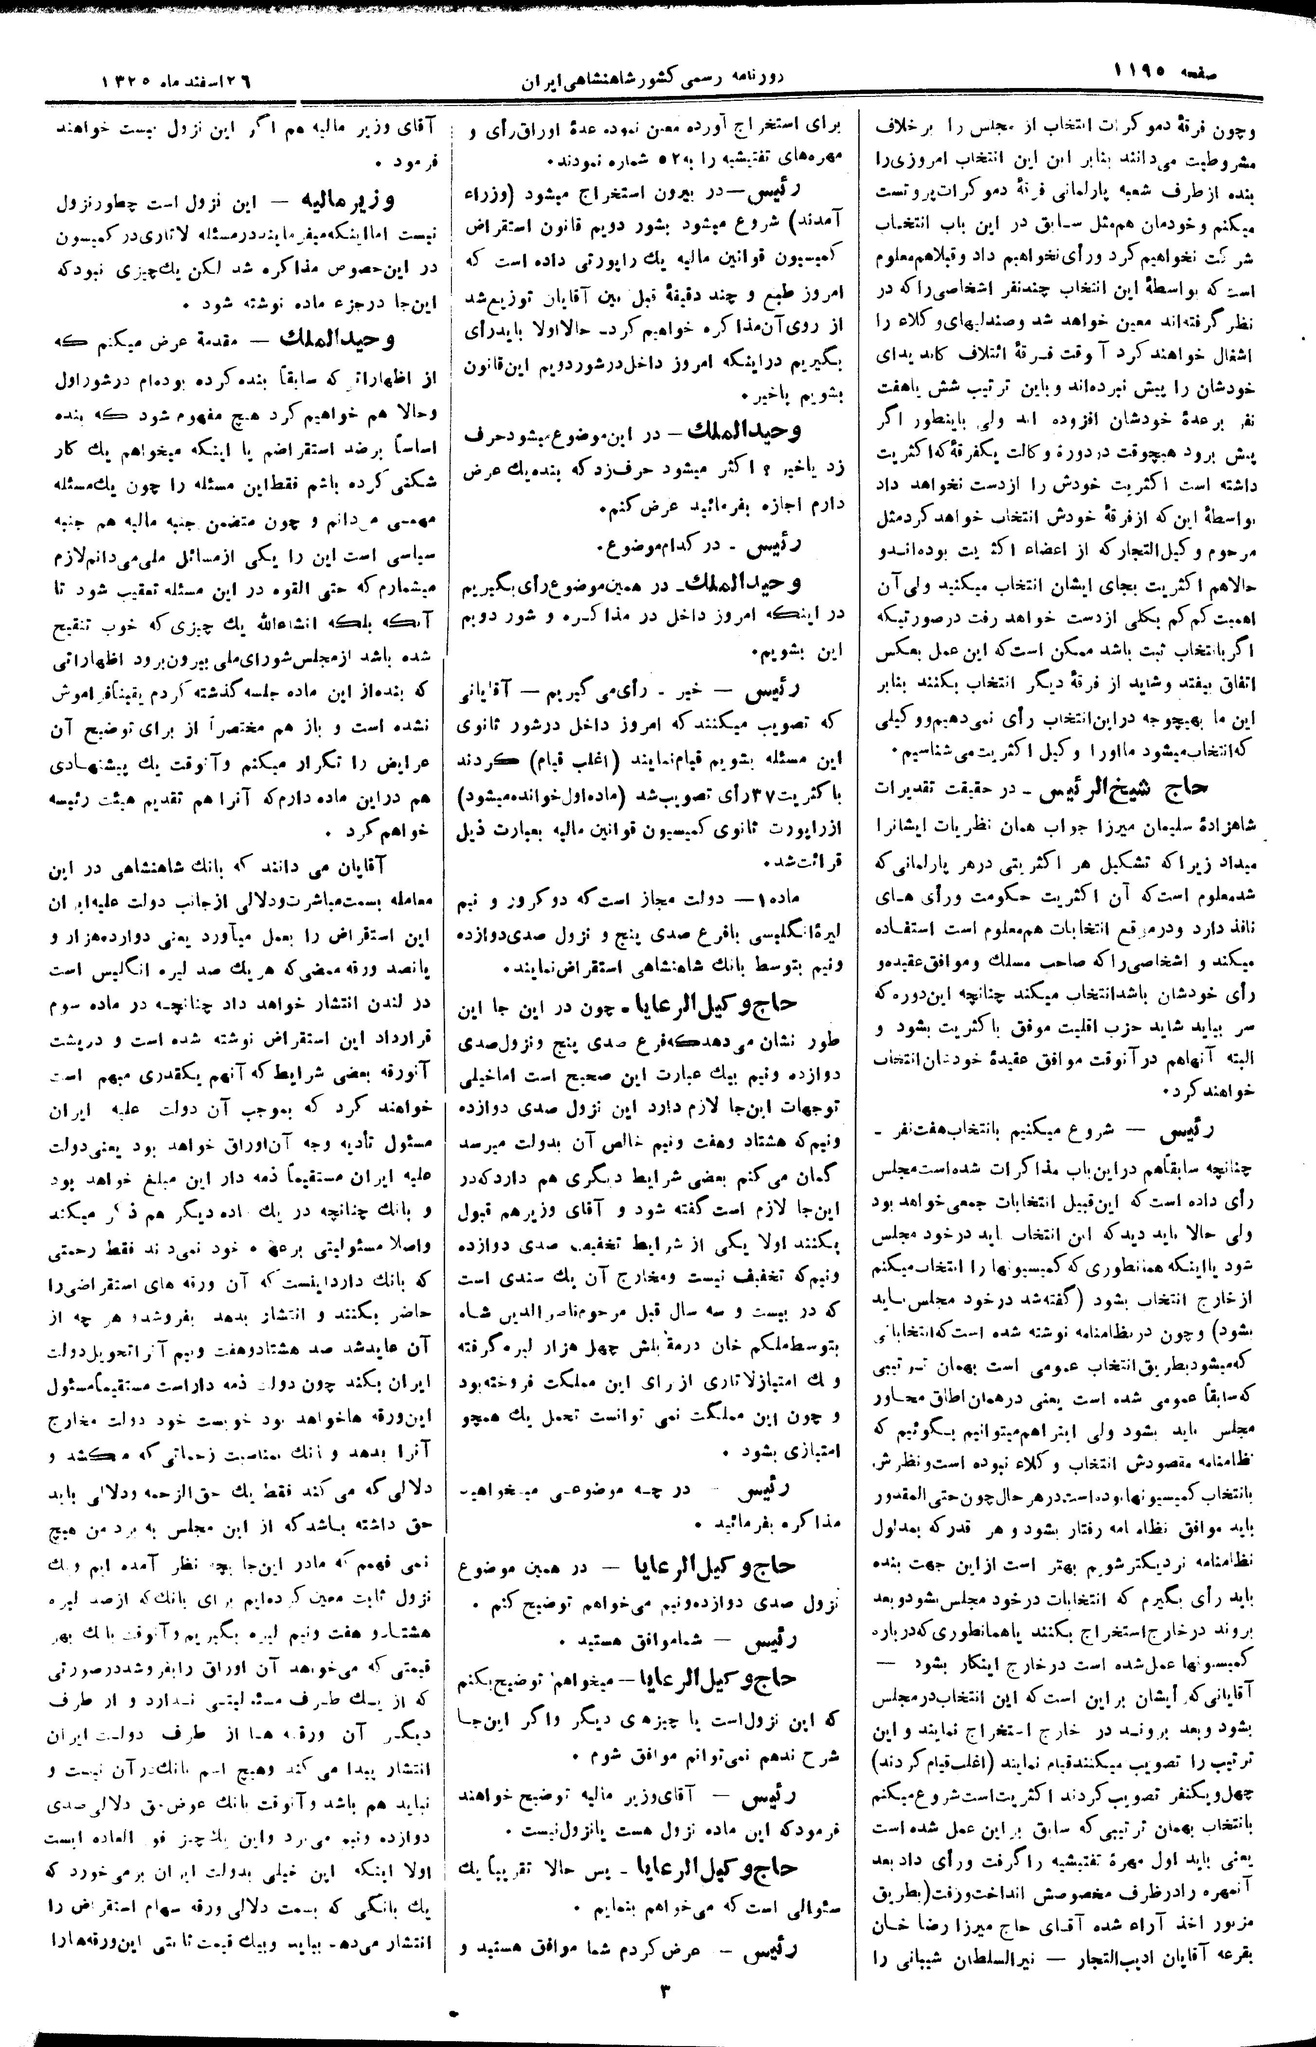 صفحه ۱۱۹۵
روزنامه رسمی کشور شاهنشاهی ایران
۲۶ اسفند ماه ۱۳۲۵
وچون فرقهٔ دموکرات انتخاب از مجلس را بر خلاف
مشروطیت می‌دانند بنابر این این انتخاب امروزی را
بنده از طرف شعبه پارلمانی فرقهٔ دموکرات پروتست
میکنم و خودمان هم مثل سابق در این باب انتخاب
شرکت نخواهیم کرد ورأی نخواهیم داد وقبلا هم معلوم
است که بواسطهٔ این انتخاب چند نفر اشخاصی را که در
نظر گرفته‌اند معین خواهد شد وصندلیهای وکلاء را
اشغال خواهند کرد آ وقت فرقهٔ ائتلاف کاندیدای
خودشان را پیش نبرده‌اند و باین ترتیب شش یا هفت
نفر بر عدهٔ خودشان افزوده اند ولی باینطور اگر
پیش برود هیچوقت در دورهٔ وکالت یکفرقهٔ که اکثریت
داشته است اکثریت خودش را از دست نخواهد داد
بواسطهٔ این که از فرقهٔ خودش انتخاب خواهد کرد مثل
مرحوم وکیل التجار که از اعضاء اکثریت بوده‌اند و
حالا هم اکثریت بجای ایشان انتخاب میکنید ولی آن
اهمیت کم کم بکلی از دست خواهد رفت در صورتیکه
اگر با انتخاب ثبت باشد ممکن است که این عمل بعکس
اتفاق بیفتد و شاید از فرقهٔ دیگر انتخاب بکنند بنابر
این ما بهیچوجه در این انتخاب رأی نمی‌دهیم و وکیلی
که انتخاب میشود ما او را وکیل اکثریت می‌شناسیم.
حاج شیخ الرئیس - در حقیقت تقدیرات
شاهزادهٔ سلیمان میرزا جواب همان نظریات ایشانرا
میداد زیرا که تشکیل هر اکثریتی در هر پارلمانی که
شد معلوم است که آن اکثریت حکومت ورأی های
نافذ دارد ودر موقع انتخابات هم معلوم است استفاده
میکند و اشخاصی را که صاحب مسلک وموافق عقیده و
رأی خودشان باشد انتخاب میکند چنانچه این دوره که
سر بیاید شاید حزب اقلیت موفق با کثریت بشود و
البته آنها هم در آنوقت موافق عقیدهٔ خودشان انتخاب
خواهند کرد.
رئیس — شروع میکنیم بانتخاب هفت نفر -
چنانچه سابقاً هم در این باب مذاکرات شده است مجلس
رأی داده است که این قبیل انتخابات جمعی خواهد بود
ولی حالا باید دید که این انتخاب باید در خود مجلس
شود یا اینکه همانطوری که کمیسیونها را انتخاب میکنم
از خارج انتخاب بشود (گفته شد در خود مجلس باید
بشود) وچون در نظامنامه نوشته شده است که انتخاباتی
که میشود بطریق انتخاب عمومی است بهمان ترتیبی
که سابقاً عمومی شده است یعنی در همان اطاق مجاور
مجلس باید بشود ولی اینرا هم میتوانیم بگوئیم که
نظامنامه مقصودش انتخاب و کلاء نبوده است و نظرش
بانتخاب کمیسیونها بوده است در هر حال چون حتی المقدور
باید موافق نظامنامه رفتار بشود و هر قدر که بمدلول
نظامنامه نزدیکتر شویم بهتر است از این جهت بنده
باید رأی بگیرم که انتخابات در خود مجلس بشود و بعد
بروند در خارج استخراج بکنند یا همانطوری که در باره
کمیسیونها عمل شده است در خارج اینکار بشود —
آقایانی که رأیشان بر این است که این انتخاب در مجلس
بشود وبعد بروند در خارج استخراج نمایند و این
ترتیب را تصویب میکنند قیام نمایند (اغلب قیام کردند)
چهل ویکنفر تصویب کردند اکثریت است شروع میکنم
بانتخاب بهمان ترتیبی که سابق بر این عمل شده است
یعنی باید اول مهرهٔ تفتیشیه را گرفت ورأی داد بعد
آنمهره را در ظرف مخصوصش انداخت ورفت (بطریق
مزبور اخذ آراء شده آقای حاج میرزا رضا خان
بقرعه آقایان ادیب التجار — نیر السلطان شیبانی را
برای استخراج آورده معین نموده عدهٔ اوراق رأی و
مهره‌های تفتیشیه را به ۵۲ شماره نمودند.
رئیس — در بیرون استخراج میشود (وزراء
آمدند) شروع میشود بشور دویم قانون استقراض
کمیسیون قوانین مالیه یک راپورتی داده است که
امروز طبع و چند دقیقهٔ قبل بین آقایان توزیع شد
از روی آن مذاکره خواهیم کرد - حالا اولا باید رأی
بگیریم در اینکه امروز داخل در شور دویم این قانون
بشویم یا خیر.
وحیدالملک — در این موضوع میشود حرف
زد یا خیر؟ اکثر میشود حرف زد که بنده یک عرض
دارم اجازه بفرمائید عرض کنم.
رئیس - در کدام موضوع.
وحیدالملک - در همین موضوع رأی بگیریم
در اینکه امروز داخل در مذاکره و شور دویم
این بشویم.
رئیس — خیر - رأی می گیریم — آقایانی
که تصویب میکنند که امروز داخل در شور ثانوی
این مسئله بشویم قیام نمایند (اغلب قیام) کردند
با کثریت ۳۷ رأی تصویب شد (ماده اول خوانده میشود)
از راپورت ثانوی کمیسیون قوانین مالیه بعبارت ذیل
قرائت شد.
ماده ۱ — دولت مجاز است که دو کرور و نیم
لیرهٔ انگلیسی با فرع صدی پنج و نزول صدی دوازده
ونیم بتوسط بانک شاهنشاهی استقراض نمایند.
حاج وکیل الرعایا - چون در این جا این
طور نشان می دهد که فرع صدی پنج و نزول صدی
دوازده ونیم بیک عبارت این صحیح است اما خیلی
توجهات این جا لازم دارد این نزول صدی دوازده
ونیم که هشتاد وهفت ونیم خالص آن بدولت میرسد
گمان می کنم بعضی شرایط دیگری هم دارد که در
این جا لازم است گفته شود و آقای وزیر هم قبول
بکنند اولا یکی از شرایط تخفیف صدی دوازده
ونیم که تخفیف نیست ومخارج آن یک سندی است
که در بیست و سه سال قبل مرحوم ناصرالدین شاه
بتوسط ملکم خان در مقابلش چهل هزار لیره گرفته
ویک امتیاز لاتاری از برای این مملکت فروخته بود
و چون این مملکت نمی توانست تحمل یک همچو
امتیازی بشود.
رئیس - در چه موضوعی میخواهید
مذاکره بفرمائید.
حاج وکیل الرعایا — در همین موضوع
نزول صدی دوازده ونیم می‌خواهم توضیح کنم.
رئیس — شما موافق هستید.
حاج وکیل الرعایا — میخواهم توضیح بکنم
که این نزول است یا چیزهای دیگر واگر این جا
شرح ندهم نمی‌توانم موافق شوم.
رئیس — آقای وزیر مالیه توضیح خواهند
فرمود که این ماده نزول هست یا نزول نیست.
حاج وکیل الرعایا - پس حالا تقریباً یک
سئوالی است که می‌خواهم بنمایم.
رئیس - عرض کردم شما موافق هستید و
آقای وزیر مالیه هم اگر این نزول نیست خواهند
فرمود.
وزیر مالیه — این نزول است چطور نزول
نیست اما اینکه میفرمایند در مسئله لاتاری در کمیسیون
در این خصوص مذاکره شد لکن یک چیزی نبود که
این جا در جزء ماده نوشته شود.
وحیدالملک — مقدمة عرض میکنم که
از اظهاراتی که سابقاً بنده کرده بوده‌ام در شور اول
وحالا هم خواهیم کرد هیچ مفهوم شود که بنده
اساساً بر ضد استقراضم یا اینکه میخواهم یک کار
شکنی کرده باشم فقط این مسئله را چون یک مسئله
مهمی میدانم و چون متضمن جنبه مالیه هم جنبه
سیاسی است این را یکی از مسائل ملی می‌دانم لازم
میشمارم که حتی القوه در این مسئله تعقیب شود تا
آنکه بلکه انشاءالله یک چیزی که خوب تنقیح
شده باشد از مجلس شورای ملی بیرون برود اظهاراتی
که بنده از این ماده جلسه گذشته کردم یقیناً فراموش
نشده است و باز هم مختصراً از برای توضیح آن
عرایض را تکرار میکنم و آنوقت یک پیشنهادی
هم در این ماده دارم که آنرا هم تقدیم هیئت رئیسه
خواهم کرد.
آقایان می دانند که بانک شاهنشاهی در این
معامله بسمت مباشرت ودلالی از جانب دولت علیه ایران
این استقراض را بعمل میآورد یعنی دوازده هزار و
پانصد ورقه ممضی که هر یک صد لیره انگلیس است
در لندن انتشار خواهد داد چنانچه در ماده سوم
قرارداد این استقراض نوشته شده است و در پشت
آنورقه بعضی شرایط که آنهم یکقدری مبهم است
خواهند کرد که بموجب آن دولت علیه ایران
مسئول تأدیه وجه آن اوراق خواهد بود یعنی دولت
علیه ایران مستقیماً ذمه دار این مبلغ خواهد بود
و بانک چنانچه در یک ماده دیگر هم ذکر میکند
واصلا مسئولیتی بر عهده خود نمی‌داند فقط زحمتی
که بانک دارد اینست که آن ورقه های استقراضی را
حاضر بکنند و انتشار بدهد بفروشد و هر چه از
آن عاید شد صد هشتاد وهفت ونیم آنرا تحویل دولت
ایران بکند چون دولت ذمه دار است مستقیماً مسئول
این ورقه ها خواهد بود خوبست خود دولت مخارج
آنرا بدهد و بانک بمناسبت زحماتی که میکشد و
دلالی که می کند فقط یک حق الزحمه ودلالی باید
حق داشته باشد که از این مجلس ببرد من هیچ
نمی فهمم که ما در این جا بچه نظر آمده ایم ویک
نزول ثابت معین کرده‌ایم برای بانک که از صد لیره
هشتاد و هفت ونیم لیره بگیریم و آنوقت بانک بهر
قیمتی که می‌خواهد آن اوراق را بفروشد در صورتی
که از یک طرف مسئولیتی ندارد و از طرف
دیگر آن ورقه ها از طرف دولت ایران
انتشار پیدا می کند وهیچ اسم بانک در آن نیست و
نباید هم باشد و آنوقت بانک عوض حق دلالی صدی
دوازده ونیم می‌برد واین یک چیز فوق العاده ایست
اولا اینکه این خیلی بدولت ایران بر می‌خورد که
یک بانکی که بسمت دلالی ورقه سهام استقراض را
انتشار می‌دهد بیاید و بیک قیمت ثابتی این ورقه ها را
۳